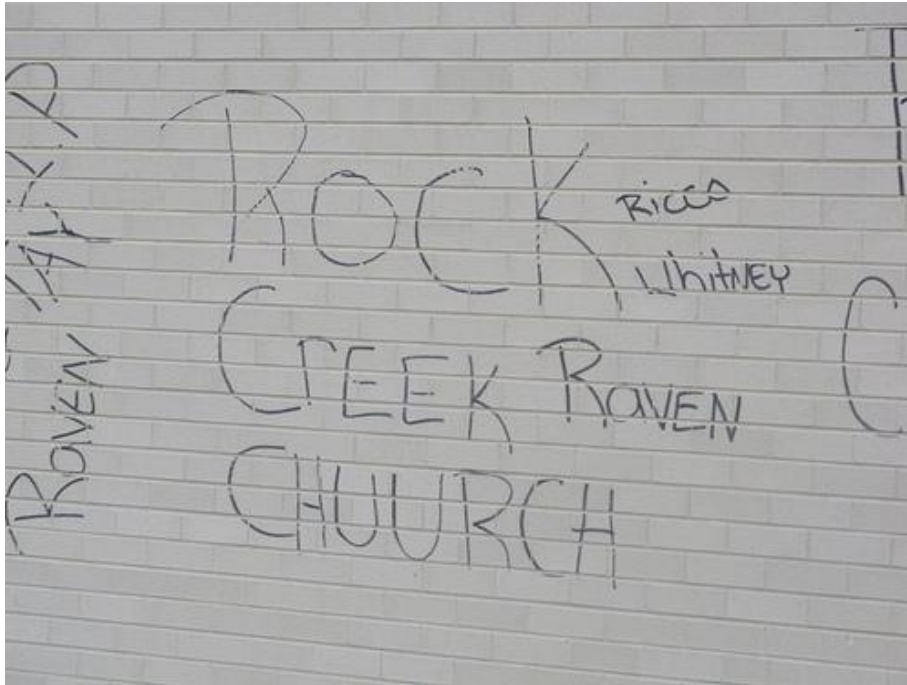 ROCK
RICCO
WhitNEY
CrEEK RaVEN
CHUURCH
RaVEN